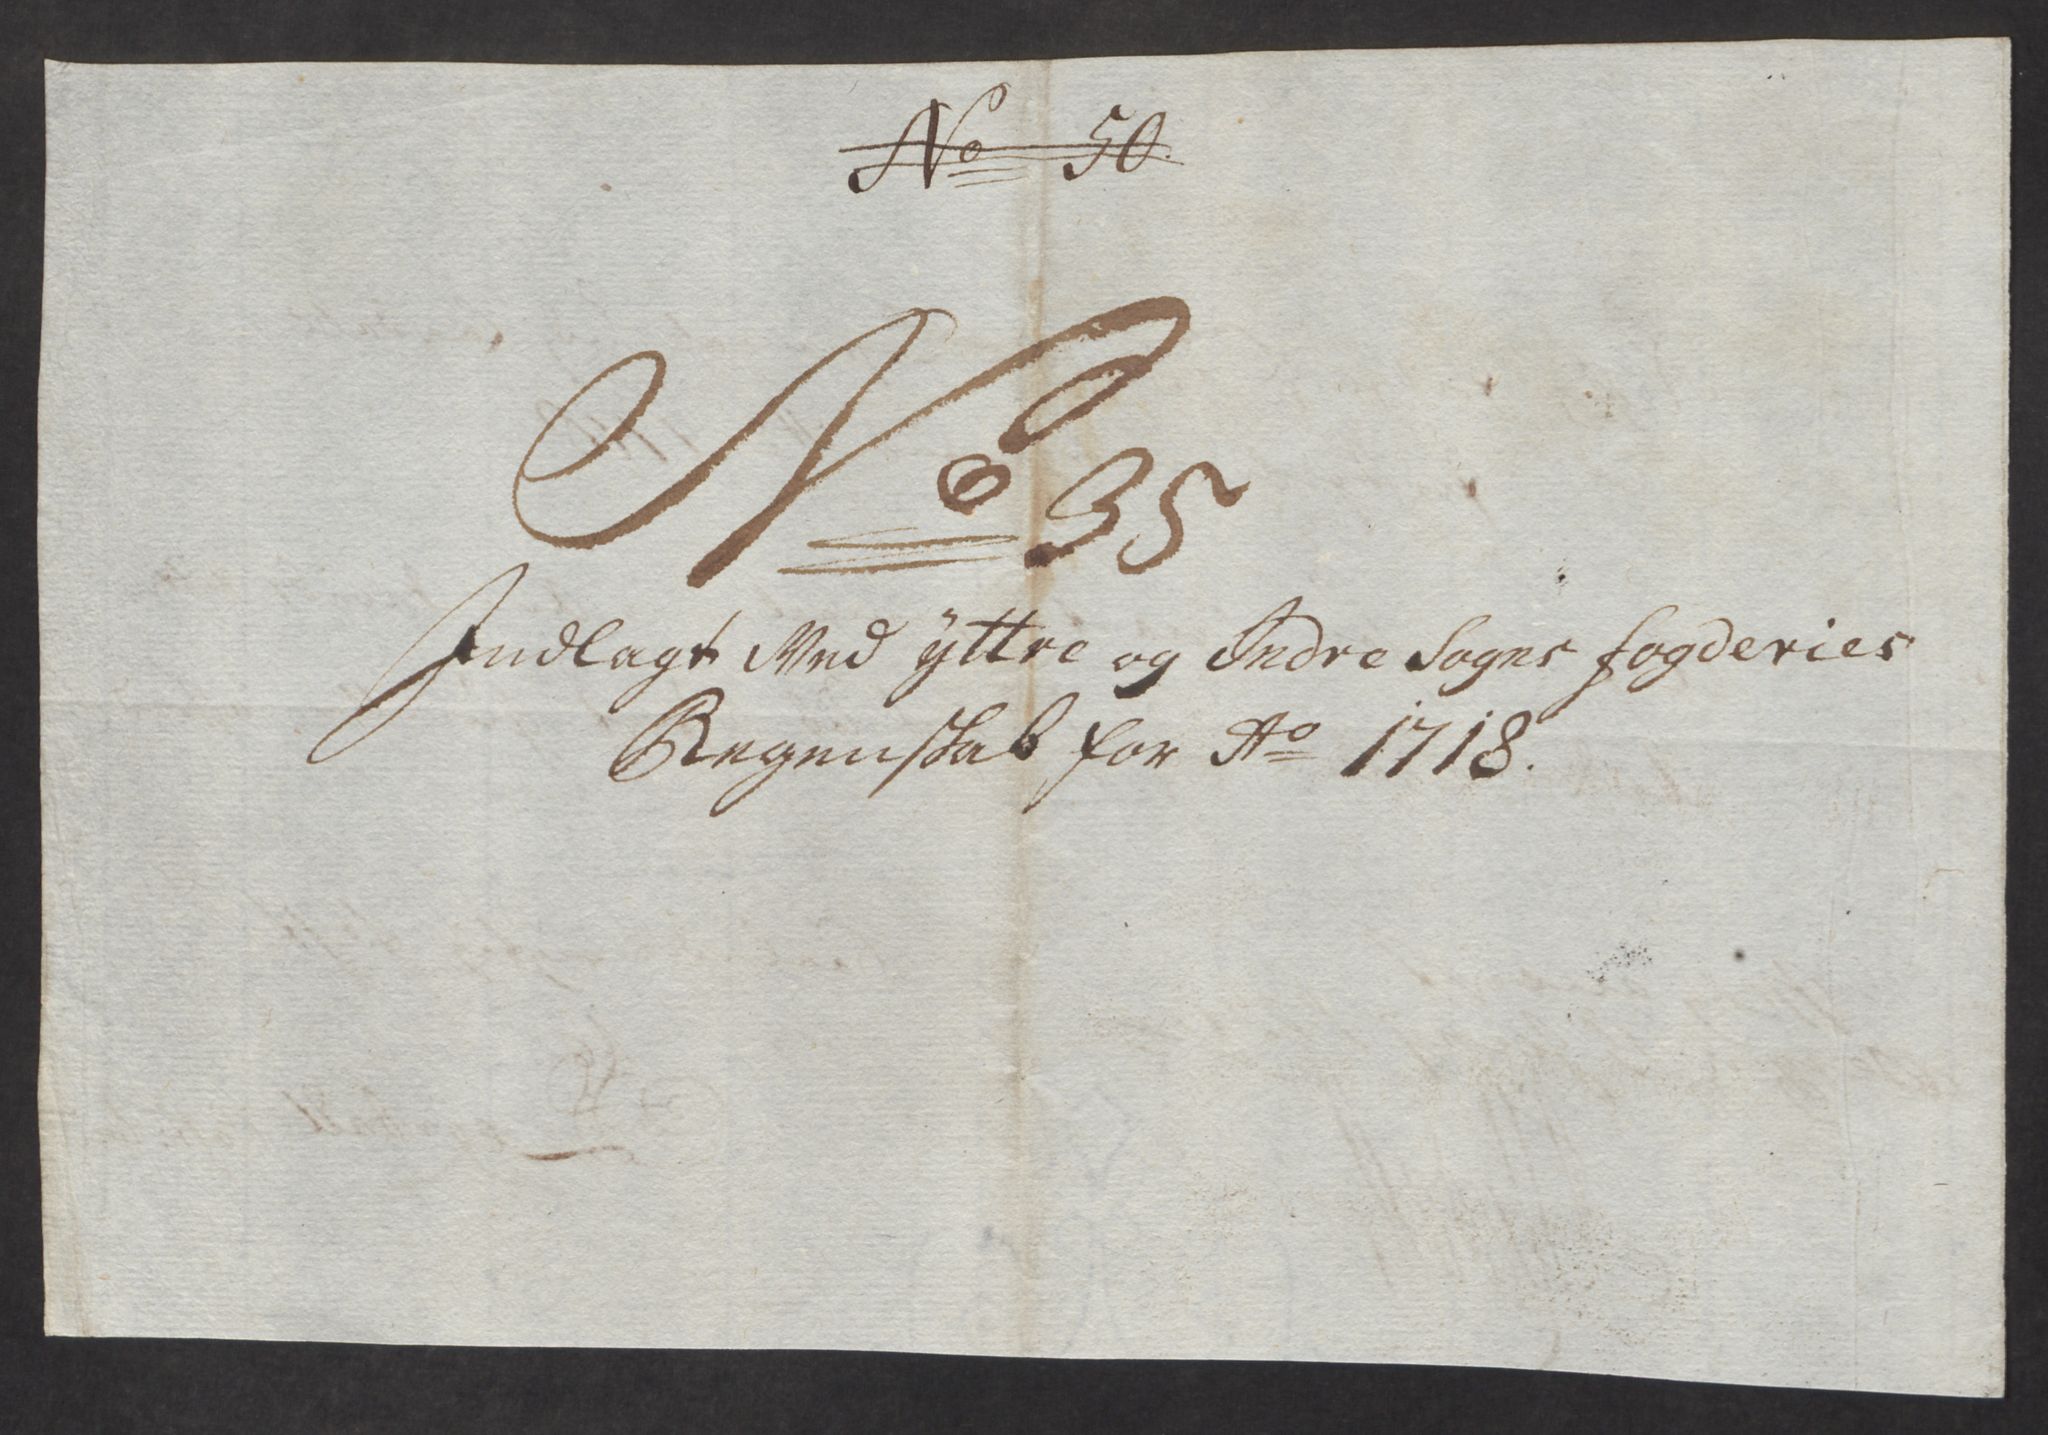 No 50.
No 35
Indlagt Med ÿttre og Indre Sogns fogderies
Regenskab for Ao 1718.